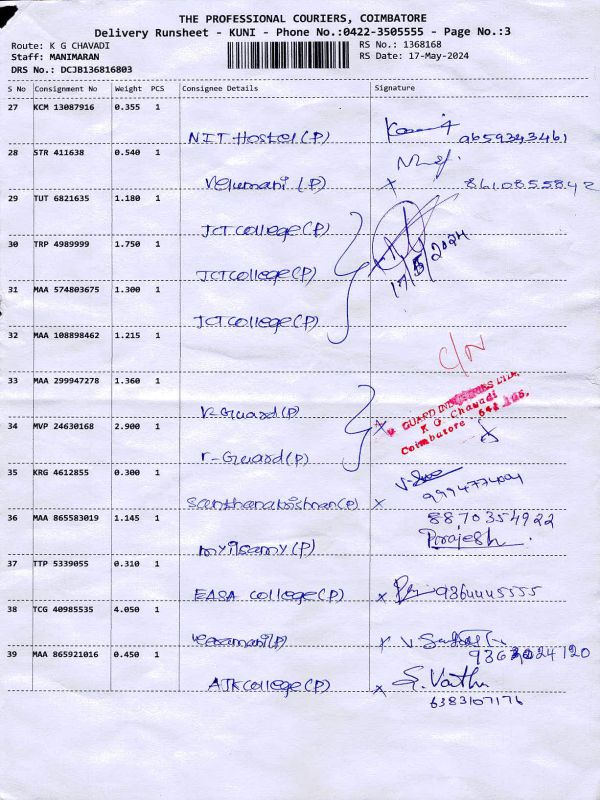 THE PROFESSIONAL COURIERS, COIMBATORE
Delivery Runsheet - KUNI - Phone No.:0422-3505555 - Page No.:3
Route: K G CHAVADI RS No.: 1368168
Staff: MANIMARAN RS Date: 17-May-2024
DRS No.: DCJB136816803
S No Consignment No Weight PCS Consignee Details Signature
27 KCM 13087916 0.355 1
NIT Hostel (P) 9659343461
28 STR 411638 0.540 1
Velumani (P) x 8610855842
29 TUT 6821635 1.180 1
JCT College (P)
30 TRP 4989999 1.750 1
JCT College (P) x 17/5/2024
31 MAA 574803675 1.300 1
JCT College (P)
32 MAA 108898462 1.215 1
C/N
33 MAA 299947278 1.360 1
V-Guard (P)
GUARD INDUSTRIES LTD.
K G. Chavadi
Coimbatore - 641 105.
34 MVP 24630168 2.900 1
V-Guard (P) x
35 KRG 4612855 0.300 1
Santhanakrishnan (P) x
36 MAA 865583019 1.145 1 8870354922
Mylsamy (P)
37 TTP 5339055 0.310 1
EASA College (P) x 9364445555
38 TCG 40985535 4.050 1
Veeramani (P) x
39 MAA 865921016 0.450 1
AJK College (P) x
6383107176